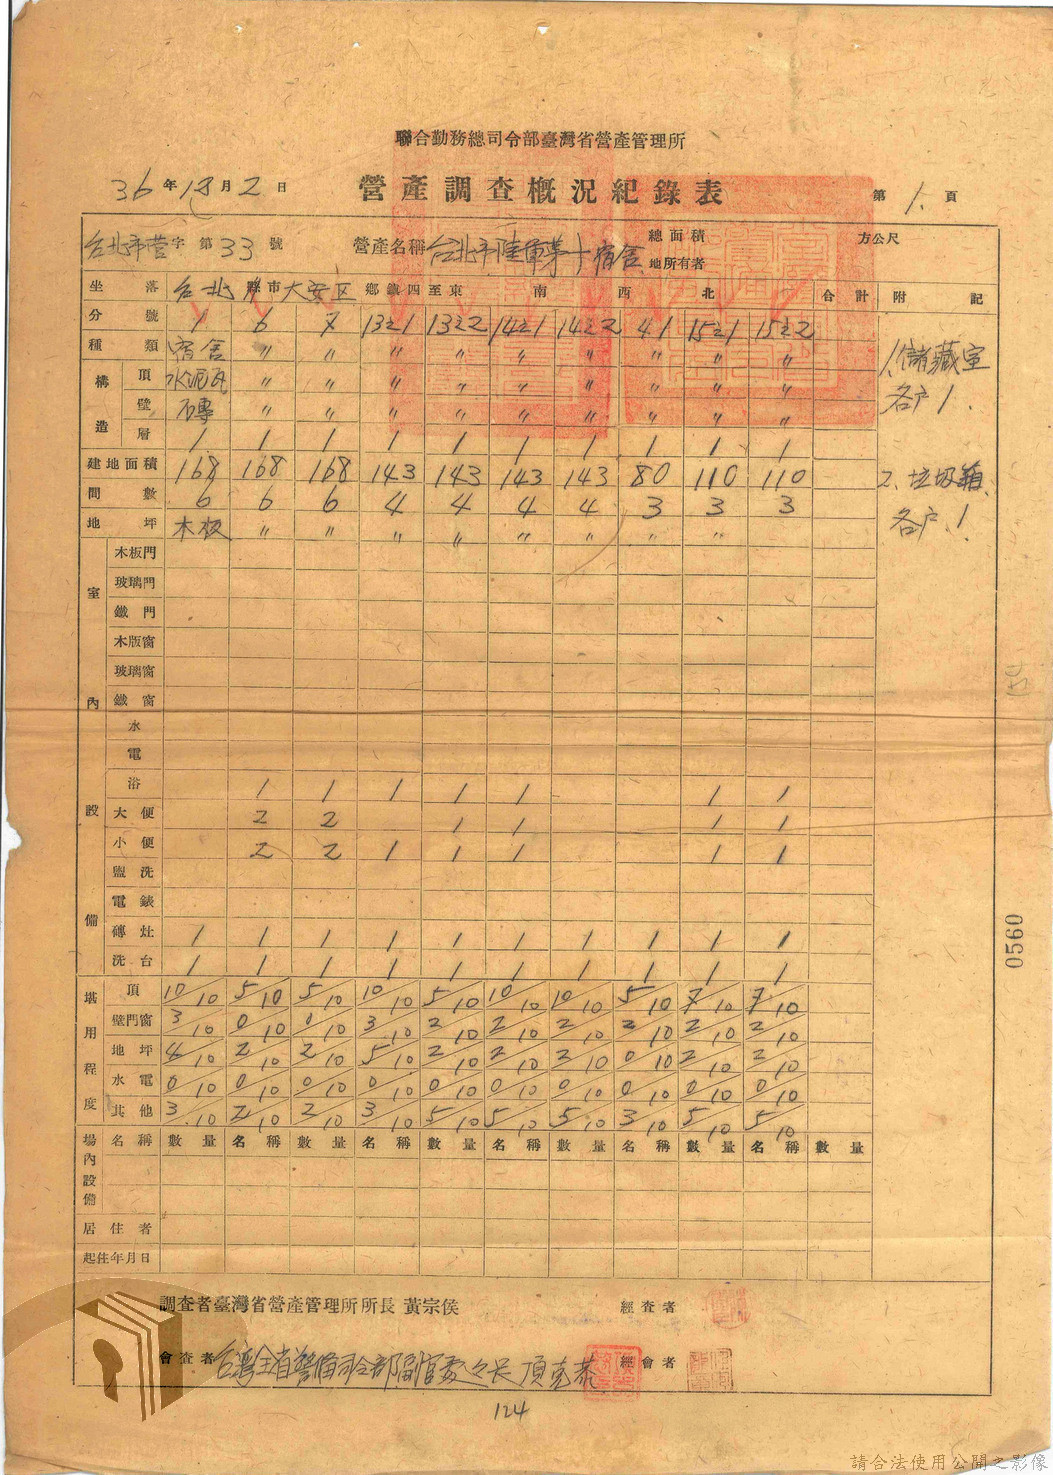 聯合勤務總司令部臺灣省營產管理所
36 年 12 月 2 日 營產調查概況紀錄表 第 1. 頁
台北市营字 第 33 號 營產名稱 台北市陸軍第十宿舍 總面積 方公尺
地所有者
坐落 台北 縣市 大安区 鄉鎮 四至東 南 西 北 合計 附記
分號 1 6 7 13之1 13之2 14之1 14之2 41 15之1 15之2
種類 宿舍 〃 〃 〃 〃 〃 〃 〃 〃 〃 1.儲藏室
構造 頂 水泥瓦 〃 〃 〃 〃 〃 〃 〃 〃 〃 各户1.
壁 磚 〃 〃 〃 〃 〃 〃 〃 〃 〃
層 1 1 1 1 1 1 1 1 1 1
建地面積 168 168 168 143 143 143 143 80 110 110 2.垃圾箱
間數 6 6 6 4 4 4 4 3 3 3 各户.1.
地坪 木板 〃 〃 〃 〃 〃 〃 〃 〃
室內設備 木板門
玻璃門
鐵門
木版窗
玻璃窗
鐵窗
水
電
浴 1 1 1 1 1 1 1
大便 2 2 1 1 1 1
小便 2 2 1 1 1 1 1
盥洗
電錶
磚灶 1 1 1 1 1 1 1 1 1 1
洗台 1 1 1 1 1 1 1 1 1 1
堪用程度 頂 10/10 5/10 5/10 10/10 5/10 10/10 10/10 5/10 7/10 7/10
壁門窗 3/10 0/10 0/10 3/10 2/10 2/10 2/10 2/10 2/10 2/10
地坪 4/10 2/10 2/10 5/10 2/10 2/10 2/10 0/10 2/10 2/10
水電 0/10 0/10 0/10 0/10 0/10 0/10 0/10 0/10 0/10 0/10
其他 3/10 2/10 2/10 3/10 5/10 5/10 5/10 3/10 5/10 5/10
場內設備 名稱 數量 名稱 數量 名稱 數量 名稱 數量 名稱 數量 名稱 數量
居住者
起住年月日
調查者臺灣省營產管理所所長 黃宗侯 經查者
會查者 台灣全省警備司令部 項克恭 經會者
124
0560
請合法使用公開之影像